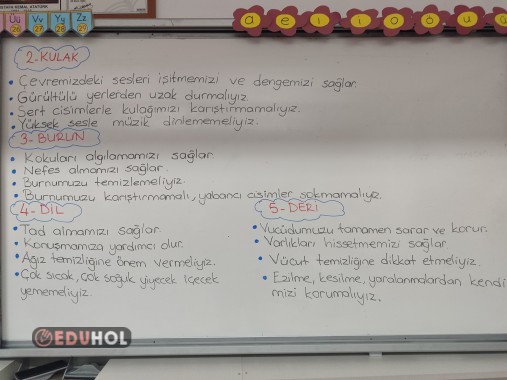 Üü Vv Yy Zz
26 27 28 29
a e ı i o ö u
2-KULAK
• Çevremizdeki sesleri işitmemizi ve dengemizi sağlar.
• Gürültülü yerlerden uzak durmalıyız.
• Sert cisimlerle kulağımızı karıştırmamalıyız.
• Yüksek sesle müzik dinlememeliyiz.
3- BURUN
• Kokuları algılamamızı sağlar.
• Nefes almamızı sağlar.
• Burnumuzu temizlemeliyiz.
• Burnumuzu karıştırmamalı, yabancı cisimler sokmamalıyız.
4- DİL
• Tad almamızı sağlar.
• Konuşmamıza yardımcı olur.
• Ağız temizliğine önem vermeliyiz.
• Çok sıcak, çok soğuk yiyecek içecek
yememeliyiz.
5- DERİ
• Vucüdumuzu tamamen sarar ve korur.
• Varlıkları hissetmemizi sağlar.
• Vücut temizliğine dikkat etmeliyiz.
• Ezilme, kesilme, yaralanmalardan kendi
mizi korumalıyız.
EDUHOL